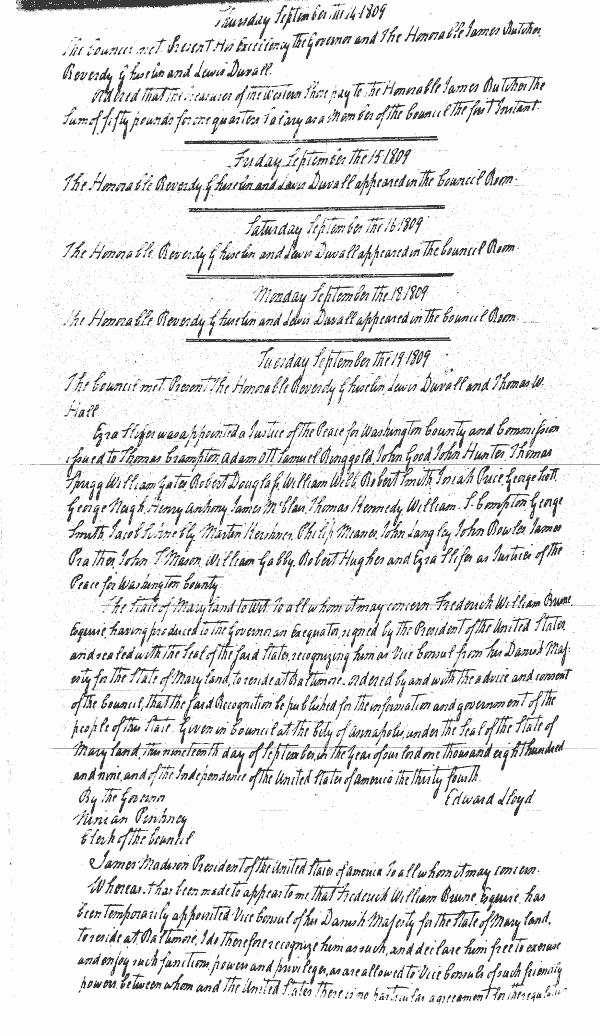 Thursday September the 14 1809
The Council met. Present His Excellency the Governor and The Honorable James Butcher
Reverdy Ghiselin and Lewis Duvall.
Ordered that the Treasurer of the Western Shore pay to the Honorable James Butcher the
Sum of fifty pounds for one quarters Salary as a Member of the Council the first Instant.
Friday September the 15 1809
The Honorable Reverdy Ghiselin and Lewis Duvall appeared in the Council Room.
Saturday September the 16 1809
The Honorable Reverdy Ghiselin and Lewis Duvall appeared in the Council Room
Monday September the 18 1809
The Honorable Reverdy Ghiselin and Lewis Duvall appeared in the Council Room.
Tuesday September the 19 1809
The Council met Present The Honorable Reverdy Ghiselin Lewis Duvall and Thomas W.
Hall
Ezra Slifer was appointed a Justice of the Peace for Washington County and Commission
issued to Thomas Crampton, Adam Ott Samuel Ringgold John Good John Hunter, Thomas
Sprigg William Gates Robert Douglas, William Webb Robert Smith Josiah Price George Scott,
George Nigh, Henry Anthony James McClain, Thomas Kennedy William. S. Compton George
Smith Jacob Schnebly Martin Kershner, Philip Meaner, John Langley John Bowles James
Prather John T Mason, William Gabby, Robert Hughes and Ezra Slifer as Justices of the
Peace for Washington County
The State of Maryland to Wit. To all whom it may concern. Frederick William Brune,
Esquire, having produced to the Governor an Exequatur, signed by the President of the United States,
and sealed with the Seal of the said States, recognizing him as Vice Consul from his Danish Maj-
esty for the State of Maryland, to reside at Baltimore. ordered by and with the advice and consent
of the Council, that the said Recognition be published for the information and government of the
people of this State. Given in Council at the City of Annapolis, under the Seal of the State of
Maryland, this nineteenth day of September, in the Year of our lord one thousand eight hundred
and nine, and of the Independence of the United States of america the thirty fourth.
By the Governor Edward Lloyd
Ninian Pinkney
Clerk of the Council
James Madison President of the United States of america To all whom it may concern.
Whereas it has been made to appear to me, that Frederick William Brune esquire, has
been temporarily appointed Vice Consul of his Danish Majesty for the State of Maryland,
to reside at Baltimore, I do therefore recognize him as such, and declare him free to exercise
and enjoy such functions, powers and privileges, as are allowed to Vice Consuls of such friendly
powers between whom and the United States there is no particular agreement for the regulation